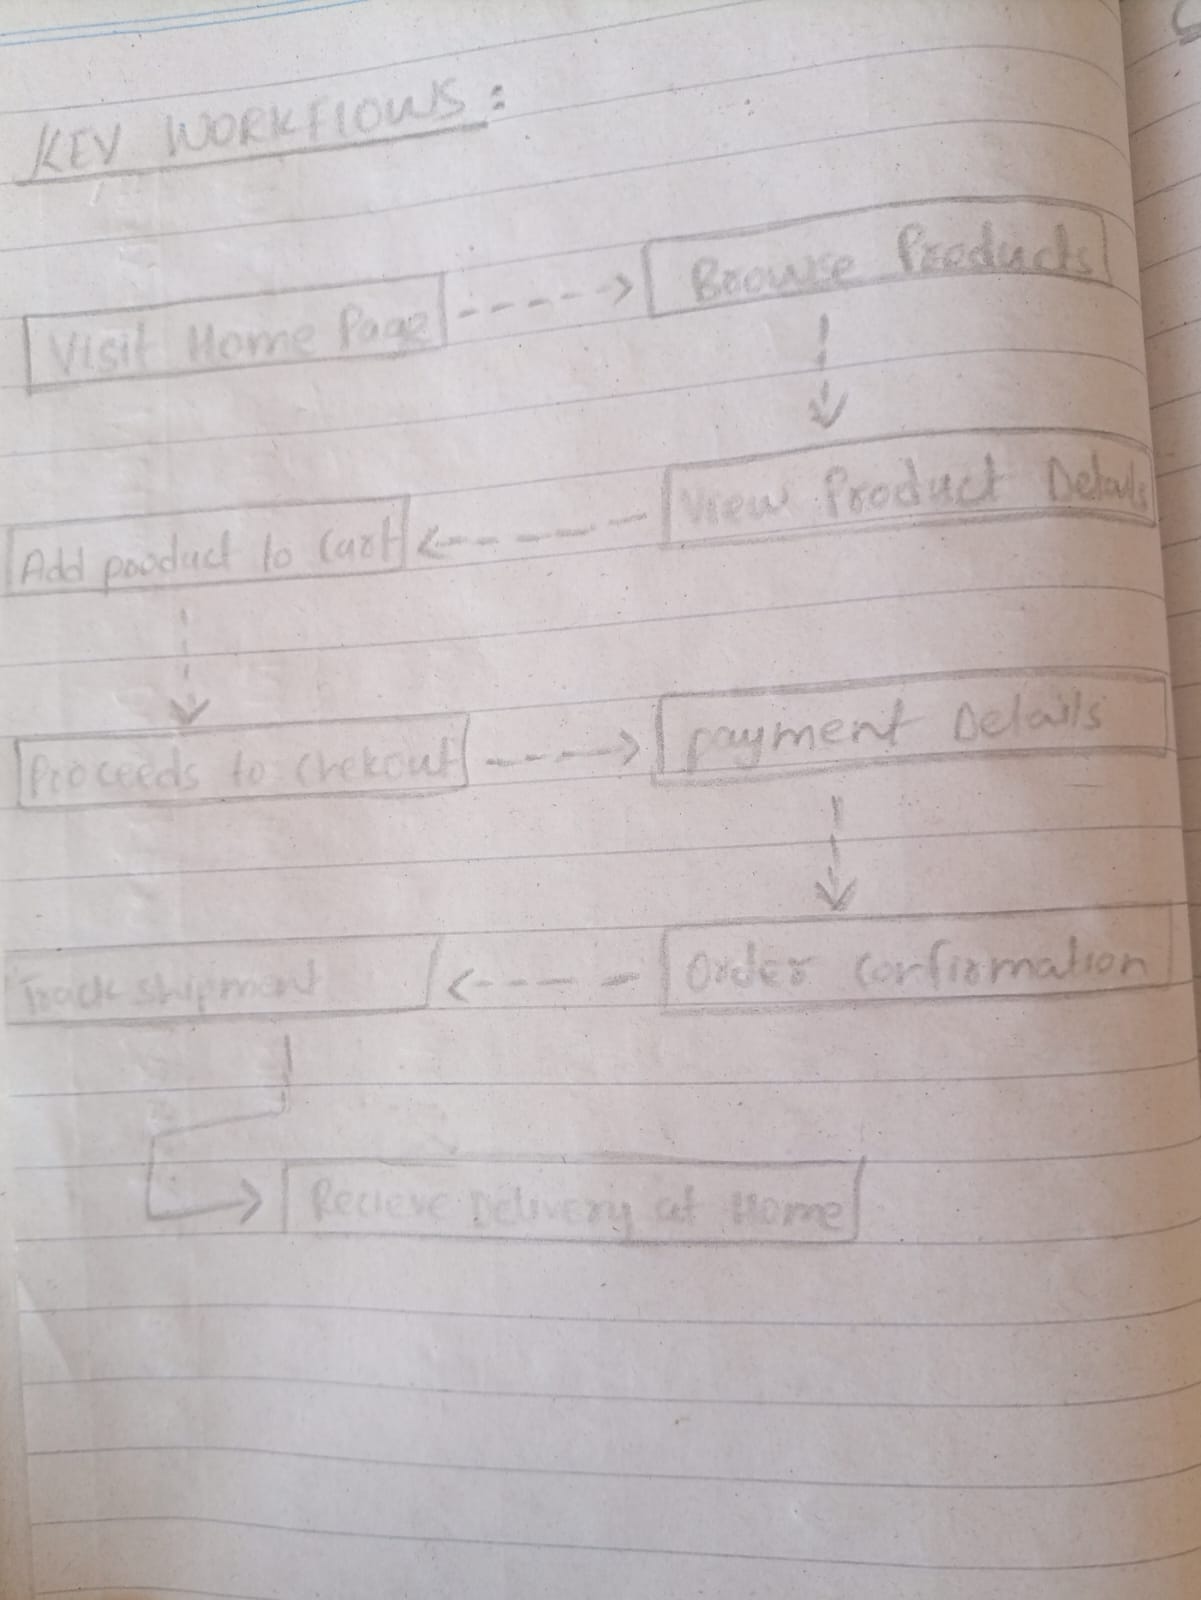 KEY WORKFLOWS:
Visit Home Page
Browse Products
View Product Details
Add pooduct to Cart
Proceeds to Chekout
payment Details
Order Confirmation
Track shipment
Recieve Delivery at Home